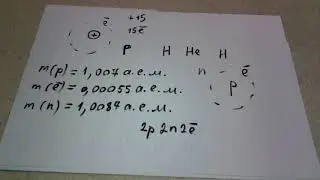 ē +15
+ 15ē
P H He H
m(p) = 1,007 а.е.м. n ē
m(ē) = 0,00055 а.е.м. p
m(n) = 1,0087 а.е.м.
2p 2n 2ē